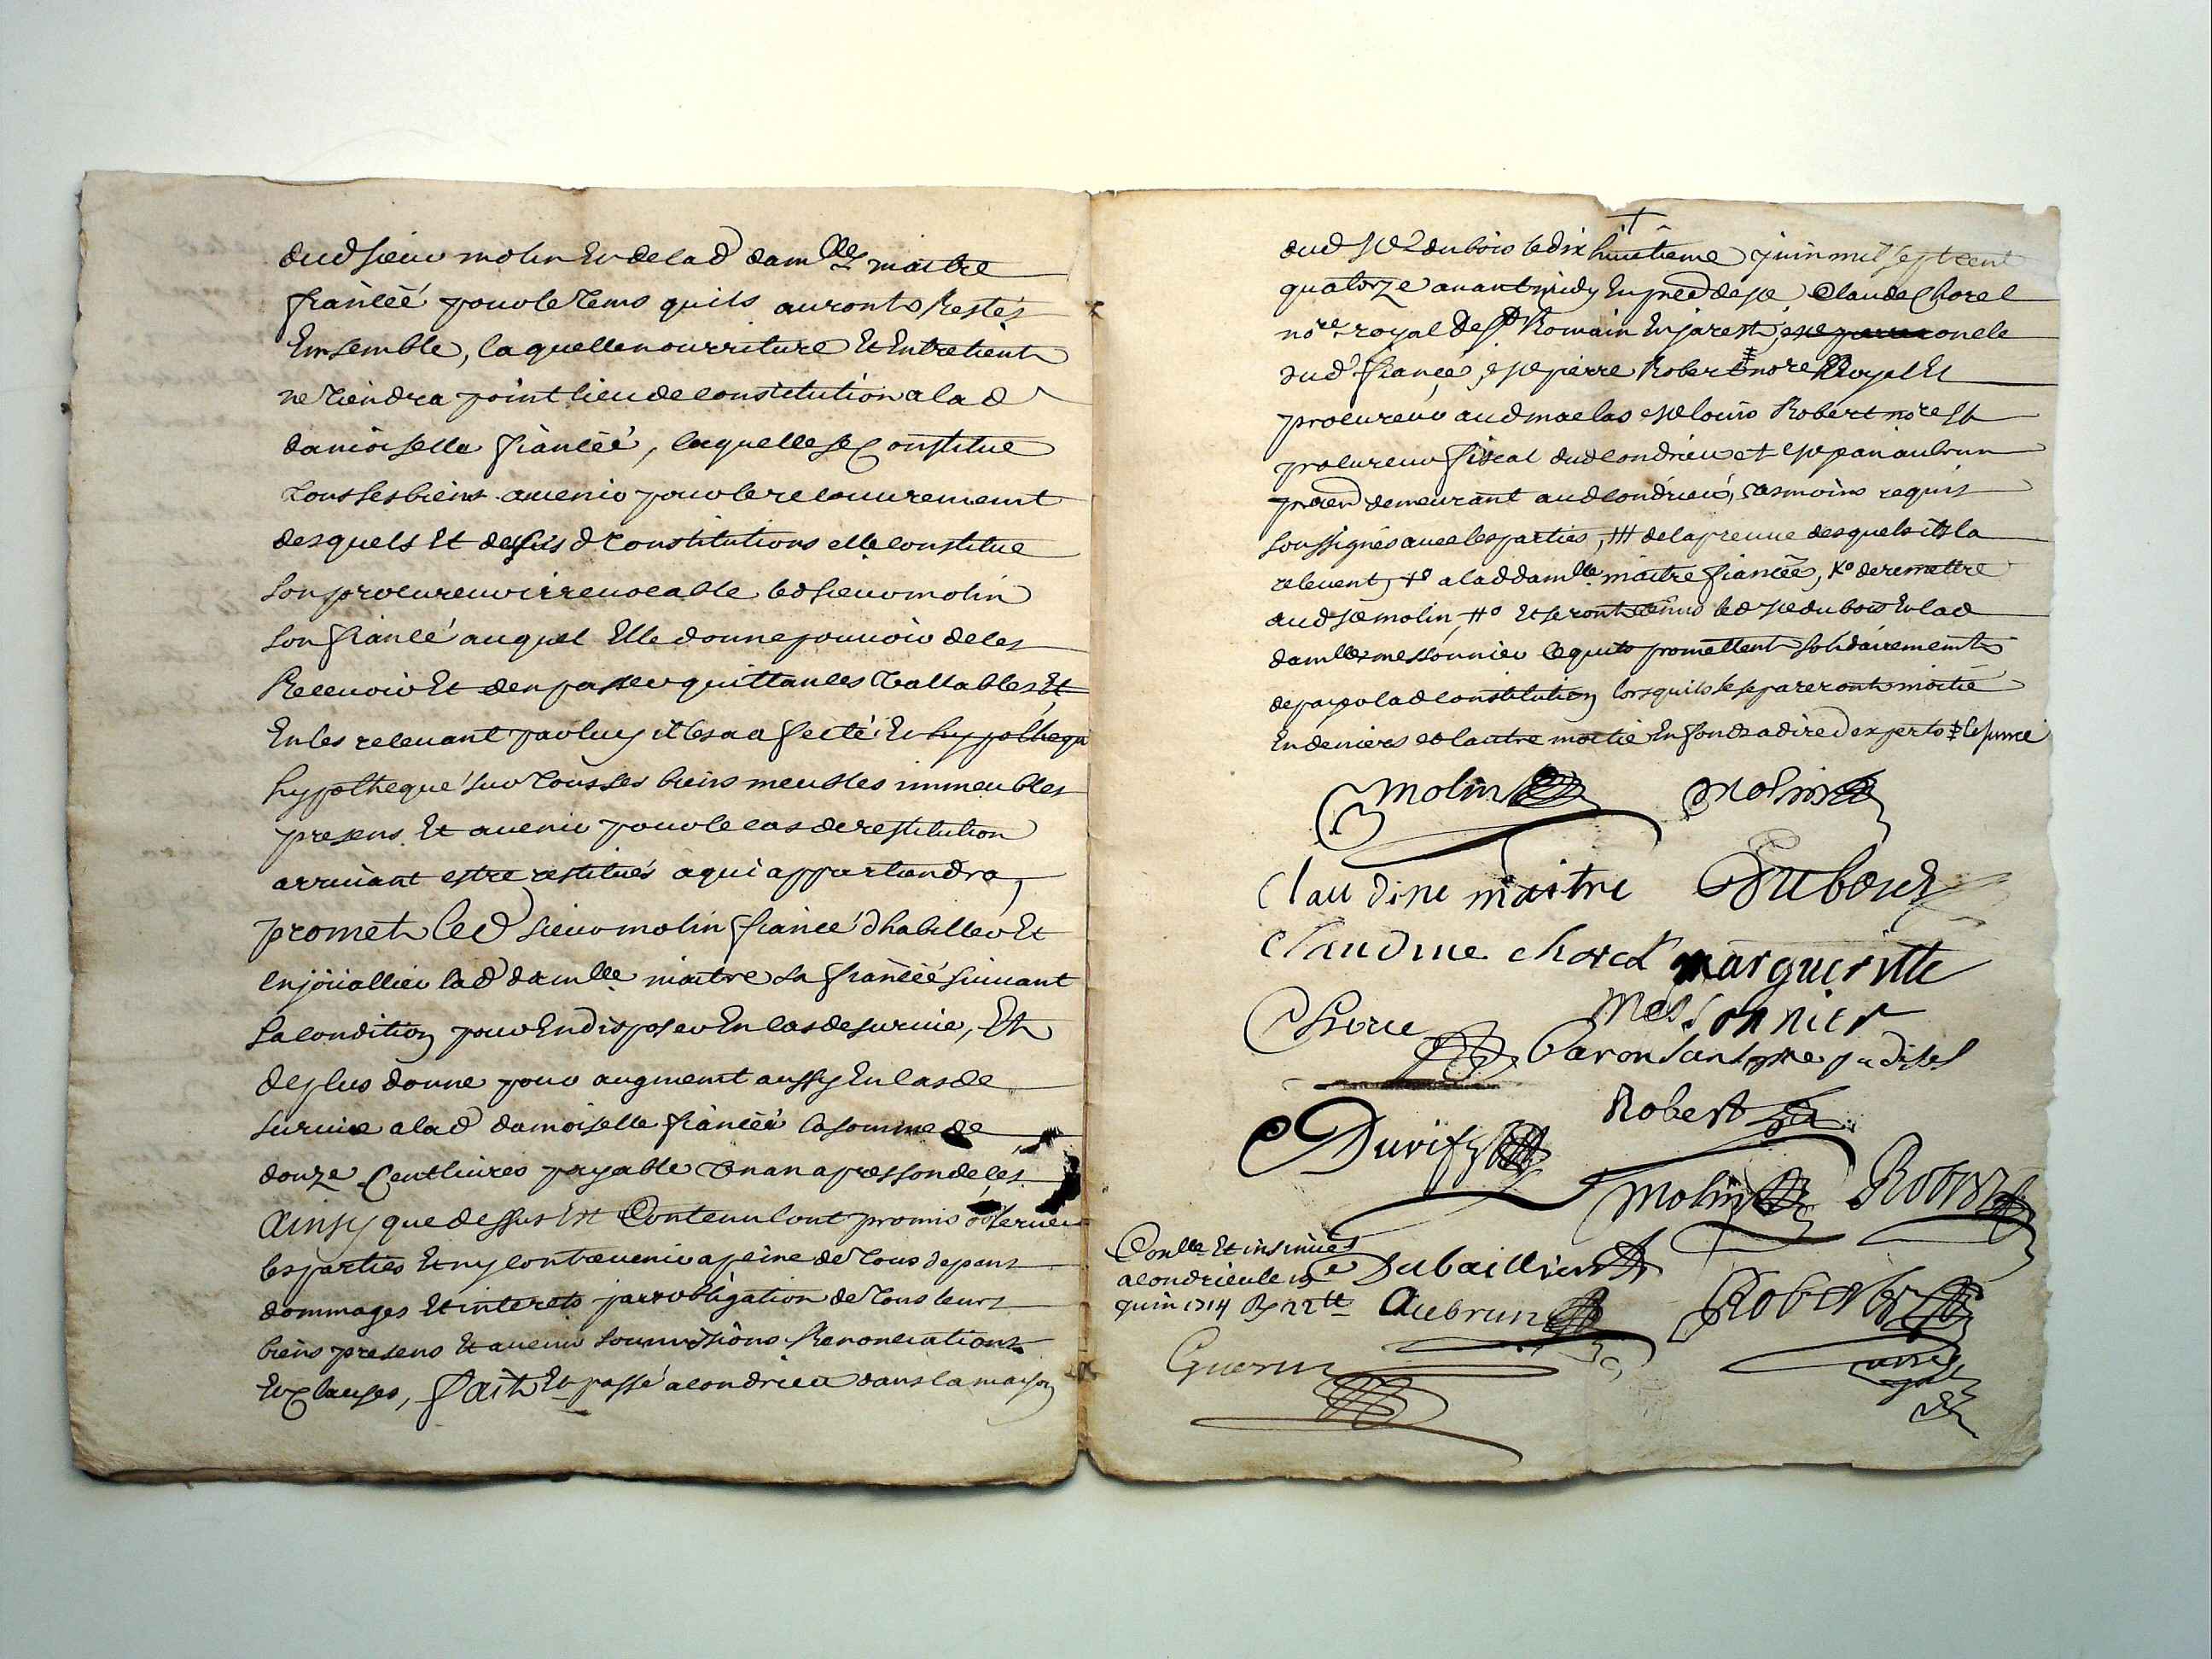 dud sieur molin Et de lad dam.lle maitre
fiancéé pour le tems quils auront Restés
Ensemble, laquelle nourriture Et Entretient
ne tiendra point lieu de constitution a lad
damoiselle fiancéé, laquelle se Constitue
tous ses biens avenir pour le recouvrement
desquels Et desus d Constitutions elle constitue
son procureur irrevocable led sieur molin
son fiancé auquel Elle donne pouvoir de les
Recevoir Et den passer quittances vallables Et
En les recevant par luy il les a affecté Et hyppothequ
hypotheque sur tous ses biens meubles immeubles
presens Et avenir pour le cas de restitution
arrivant estre restitués a qui appartiendra,
promet led sieur molin fiancé dhabiller Et
enjoüallier lad damlle maitre sa fiancéé suivant
sa condition pour En disposer En cas de survie, Et
de plus donne pour augment aussy En cas de
survie a lad damoiselle fiancéé la somme de
douze Cent livres payable Un an apres son deces
Ainsy que dessus Est Contenu lont promis observer
les parties Et ny contrevenir a peine de tous depans
dommages Et interets par obligation de tous leurs
biens presens Et avenir soumissions Renonciations
Et Clauses, fait Et passé a condrieu dans la maison
dud sr dubois le dix huitieme juin mil sept cent
quatorze avant midy En pnce de sr Claude Chorel
nore royal de St Romain En jarest, oncle
dud fiancé, sr pierre Robert nore Royal Et
procureur aud maclas sr louis Robert nore Et
procureur fiscal dud condrieu et sr pan aubrun
demeurant aud condrieu, tesmoins requis
soussignés avec les parties, de la preuve desquels ils la
relevent, a lad damlle maitre fiancéé, de remettre
aud sr molin, Et seront tenus led sr dubois Et lad
damlle messonnier Ce quils promettent solidairement
de payer lad constitution lorsquils se separeront moitié
En deniers et lautre moitié En fonds a dire dexperts
molin molin
Claudine maitre Dubois
Claudine chorel margueritte
messonnier
Chorel
Robert
Durif
molin Robert
Conlle Et insinué
a condrieu le 19e Dubaillier
juin 1714 Aubrun Robert
Guerin